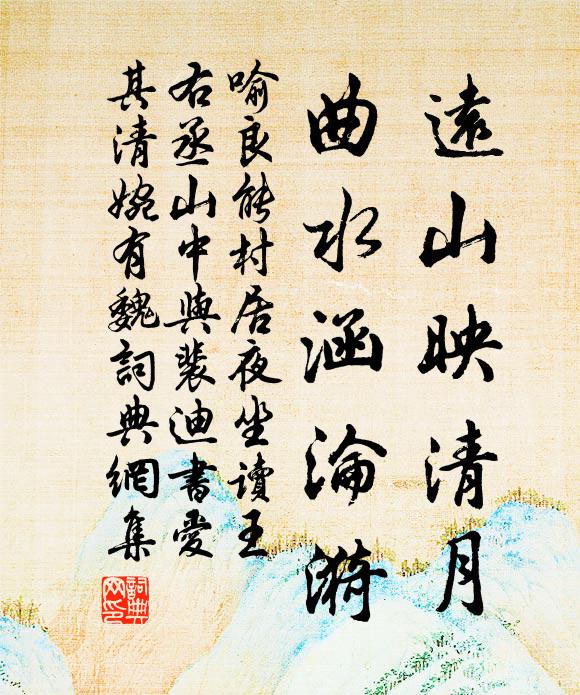 遠山映清月
曲水涵淪漪
喻良能村居夜坐讀王
右丞山中與裴迪書愛
其清婉有魏詞典網集
詞典